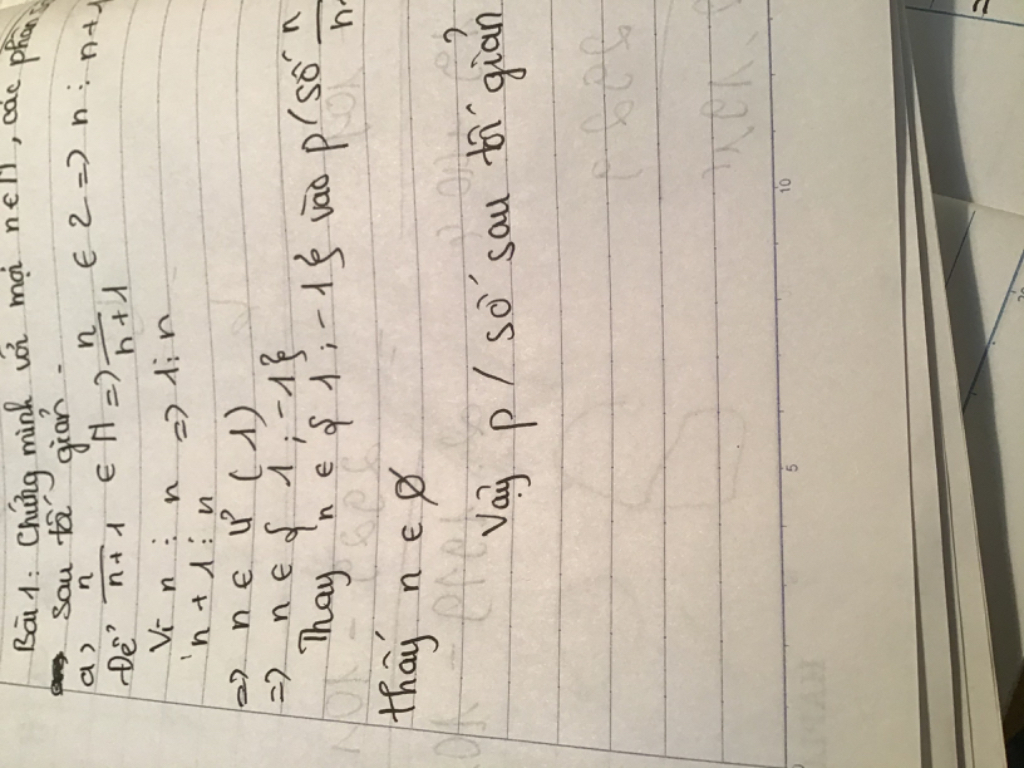 Bài 1: Chứng minh với mọi n ∈ N, các phân số
sau tối giản.
a) n
Để n+1 ∈ N => n/n+1 ∈ Z => n ⋮ n+1
Vì n ⋮ n => 1 ⋮ n
n + 1 ⋮ n
=> n ∈ Ư (1)
=> n ∈ { 1 ; -1}
Thay n ∈ { 1 ; -1} vào p/số n
thấy n ∈ ∅
Vậy p/số sau tối giản
5
10